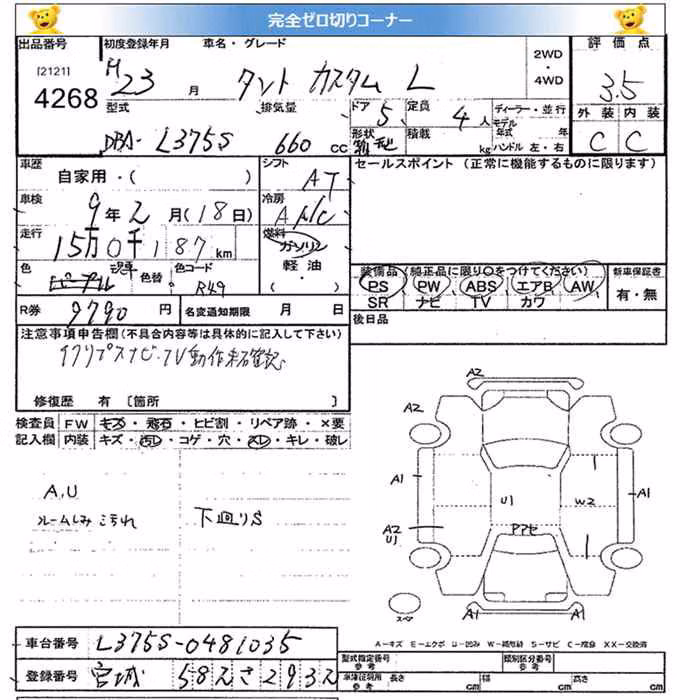 完全ゼロ切りコーナー
出品番号 初度登録年月 車名・グレード 2WD・4WD 評価点
[2121] 4268 H23 月 タント カスタム L 3.5
型式 排気量 ドア 5 定員 4人 ディーラー・並行 外装 内装
DBA- L375S 660 cc 形状 積載 kg モデル年式 年 C C
ハンドル 左・右
車歴 シフト セールスポイント (正常に機能するものに限ります)
自家用・( ) AT
車検 冷房
9年2月(18日) A/C
走行 燃料
15万0千187km ガソリン
色 色替 色コード 軽油・( )
R49
装備品(純正品に限り○をつけてください) 新車保証書
PS PW ABS エアB AW 有・無
SR ナビ TV カワ
R券 9790円 名変通知期限 月 日 後日品
注意事項申告欄(不具合内容等は具体的に記入して下さい)
イクリプスナビ・TV動作未確認
修復歴 有 〔箇所 〕
検査員 FW キズ・飛石・ヒビ割・リペア跡・×要
記入欄 内装 キズ・汚レ・コゲ・穴・スレ・キレ・破レ
A.U
ルームしみ こうれ 下廻りS
A2
A2
1
A1 U1 W2 A1
A2
U1
スペア
A1 A1
A-キズ E-エクボ U-凹み W-補修跡 S-サビ C-腐食 XX-交換済
車台番号 L375S-0481035
型式指定番号 参考 類別区分番号 参考
登録番号 宮城 582 さ 2932
車庫証明用 参考 長さ cm 幅 cm 高さ cm